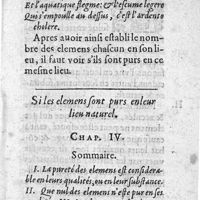 Et l'aquatique flegme: & l'escume legere
Qui s'empoulle au dessus, c'est l'ardente
cholere.
Apres auoir ainsi establi le nom-
bre des elemens chascun en son li-
eu, il faut voir s'ils sont purs en ce
mesme lieu.
Si les elemens sont purs en leur
lieu naturel.
CHAP. IV.
Sommaire.
I. La pureté des elemens est considera-
ble en leurs qualités, ou en leur substance.
II. Que nul des elemens n'est pur en ses